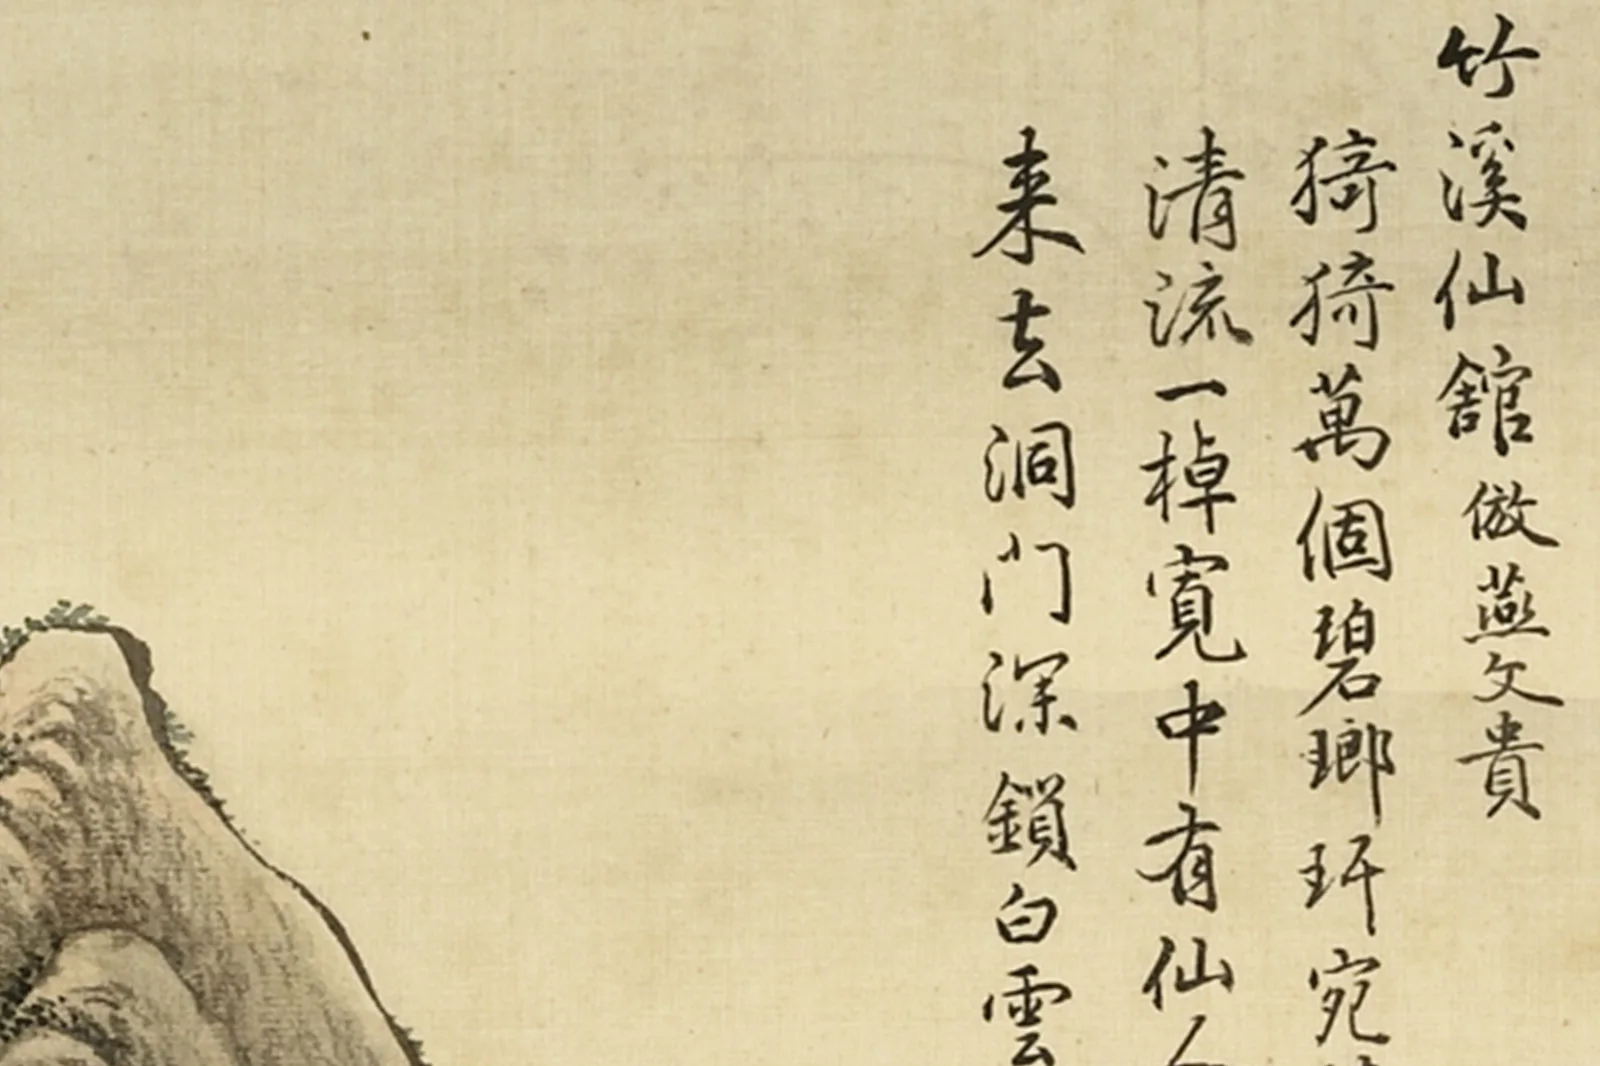 竹溪仙舘倣燕文貴
猗猗萬個碧瑯玕宛
清流一棹寬中有仙
来去洞門深鎖白雲